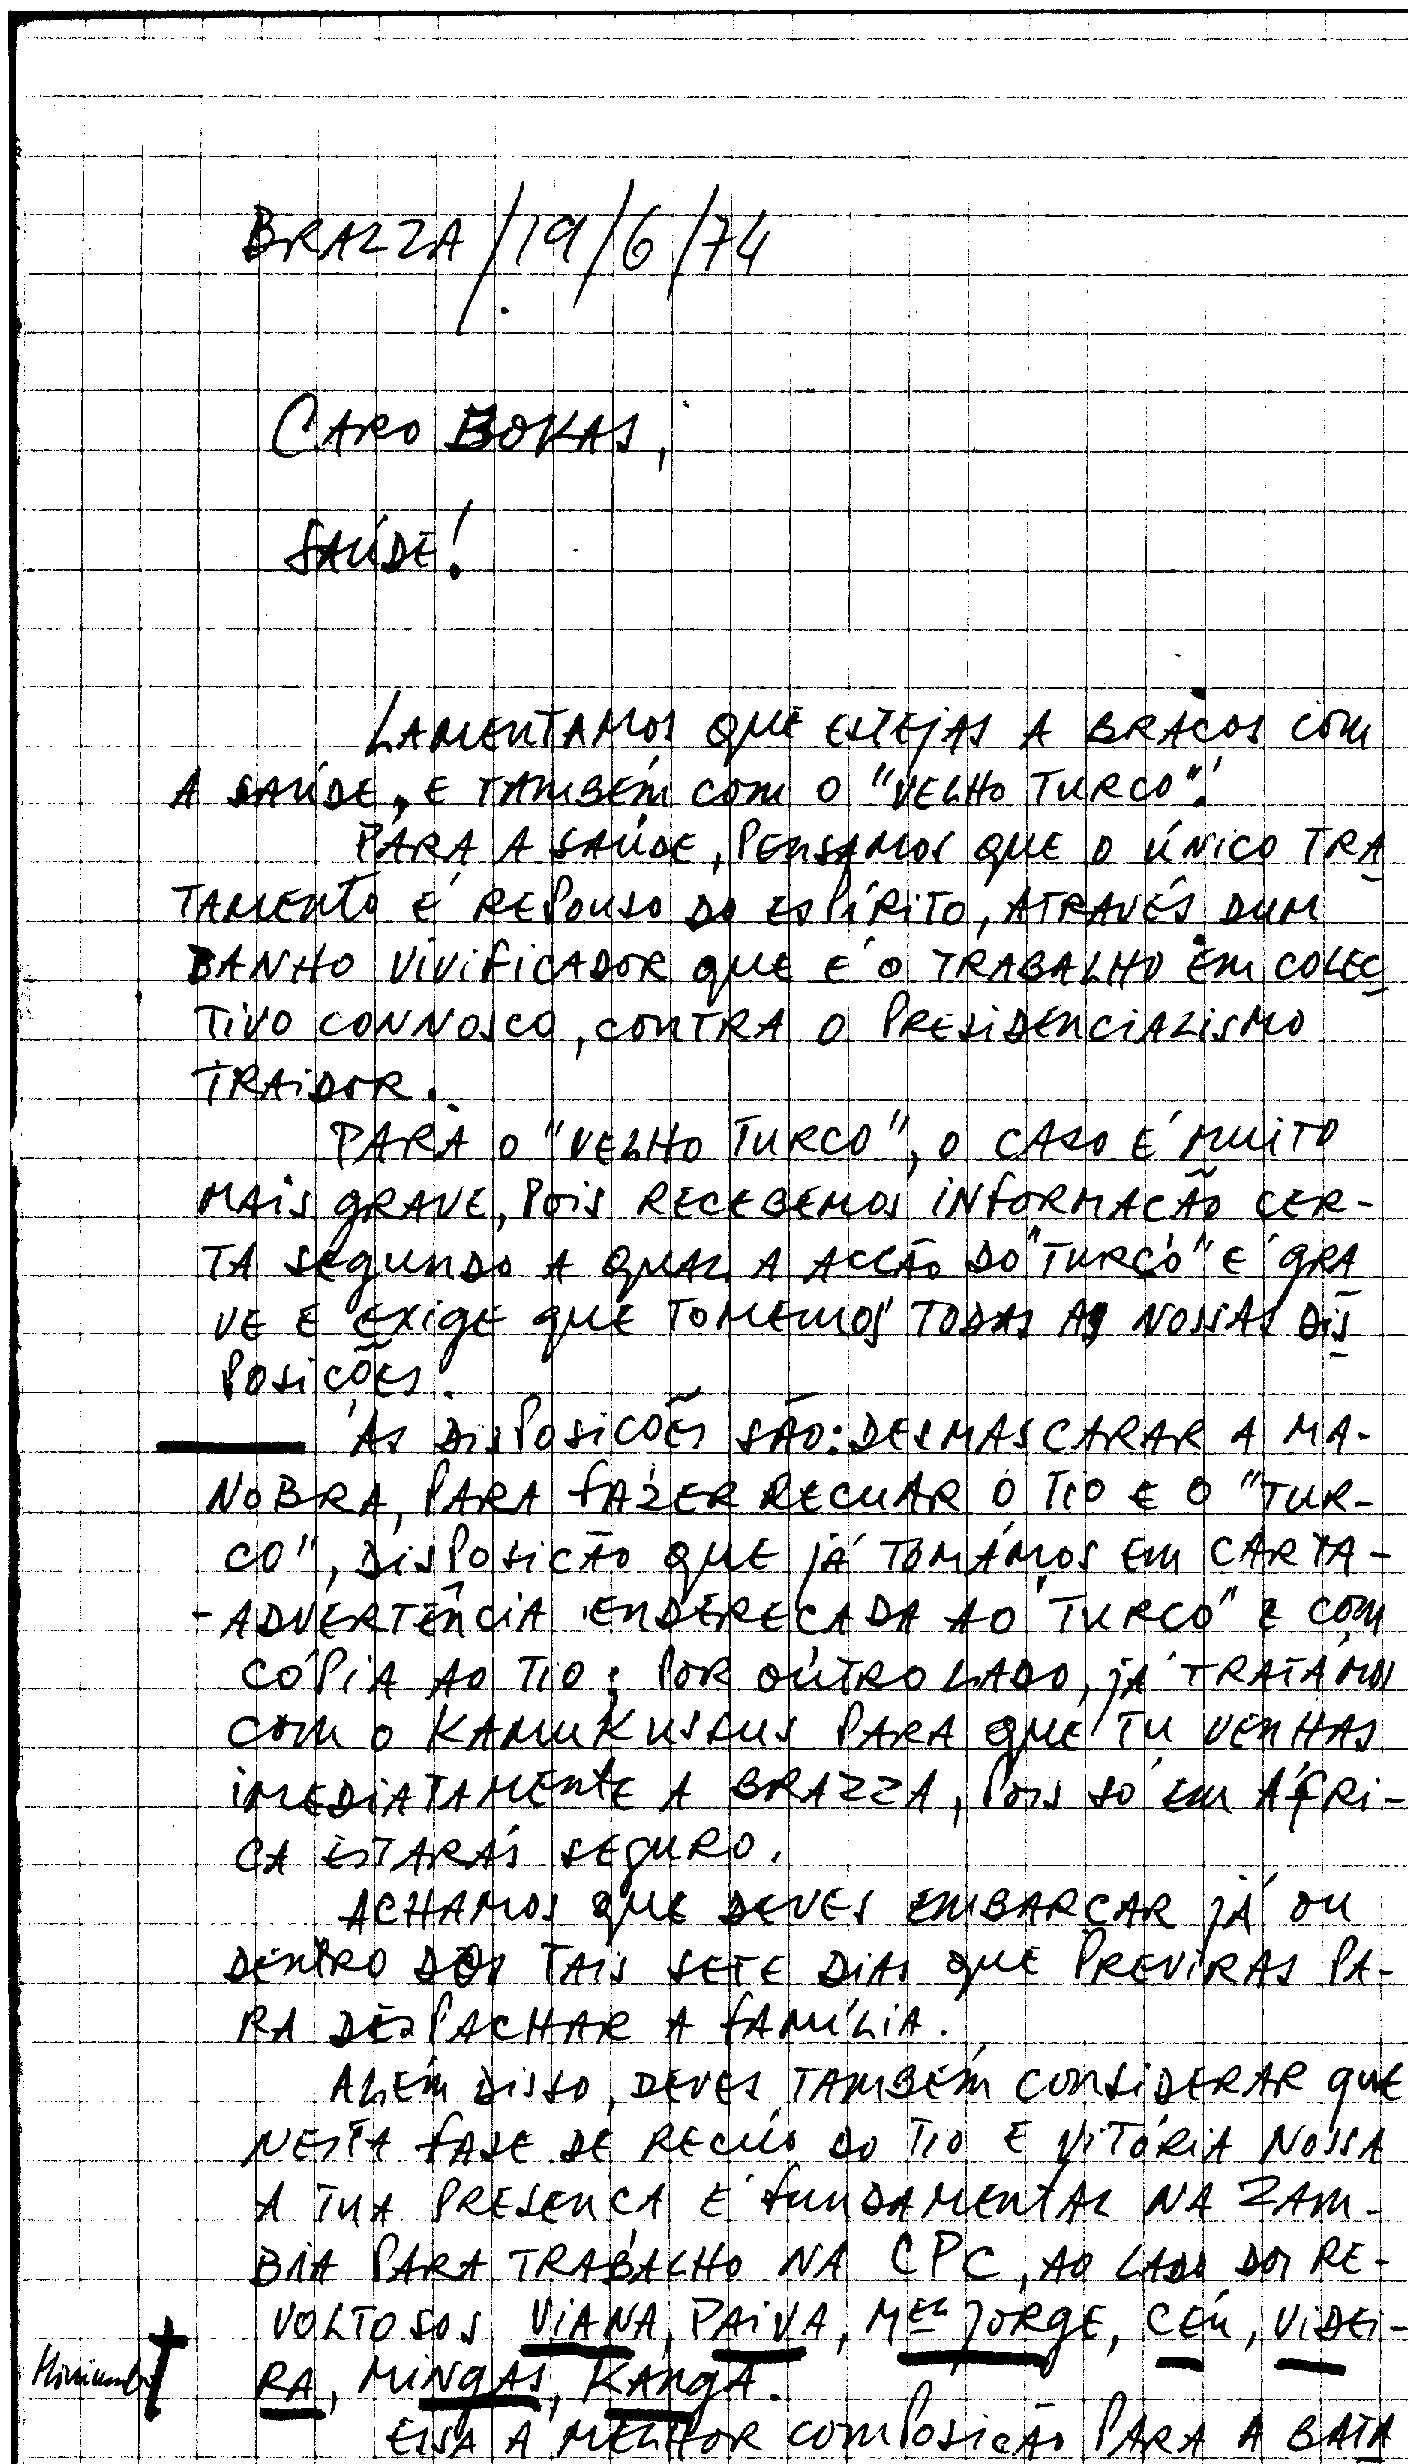 BRAZZA/19/6/74
CARO BOKAS,
SAÚDE!
LAMENTAMOS QUE ESTEJAS A BRAÇOS COM
A SAÚDE, E TAMBÉM COM O "VELHO TURCO".
PARA A SAÚDE, PENSAMOS QUE O ÚNICO TRA
TAMENTO É REPOUSO DO ESPÍRITO, ATRAVÉS DUM
BANHO VIVIFICADOR QUE É O TRABALHO EM COLEC
TIVO CONNOSCO, CONTRA O PRESIDENCIALISMO
TRAIDOR.
PARA O "VELHO TURCO", O CASO É MUITO
MAIS GRAVE, POIS RECEBEMOS INFORMAÇÃO CER-
TA SEGUNDO A QUAL A ACÇÃO DO "TURCO" É GRA
VE E EXIGE QUE TOMEMOS TODAS AS NOSSAS DIS
POSIÇÕES.
AS DISPOSIÇÕES SÃO: DESMASCARAR A MA-
NOBRA, PARA FAZER RECUAR O TIO E O "TUR-
CO", DISPOSIÇÃO QUE JÁ TOMÁMOS EM CARTA-
-ADVERTÊNCIA ENDEREÇADA AO "TURCO" E COM
CÓPIA AO TIO; POR OUTRO LADO, JÁ TRATÁMOS
COM O KAMUKUSSUS PARA QUE TU VENHAS
IMEDIATAMENTE A BRAZZA, POIS SÓ EM ÁFRI-
CA ESTARÁS SEGURO.
ACHAMOS QUE DEVES EMBARCAR JÁ OU
DENTRO DOS TAIS SETE DIAS QUE PREVIRAS PA-
RA DESPACHAR A FAMÍLIA.
ALÉM DISSO, DEVES TAMBÉM CONSIDERAR QUE
NESTA FASE DE RECUO DO TIO E VITÓRIA NOSSA
A TUA PRESENÇA É FUNDAMENTAL NA ZAM-
BIA PARA TRABALHO NA CPC, AO LADO DOS RE-
VOLTOSOS VIANA, PAIVA, MEL JORGE, CÉU, VIDEI-
RA, MINGAS, KANGA.
ESSA A MELHOR COMPOSIÇÃO PARA A BATA